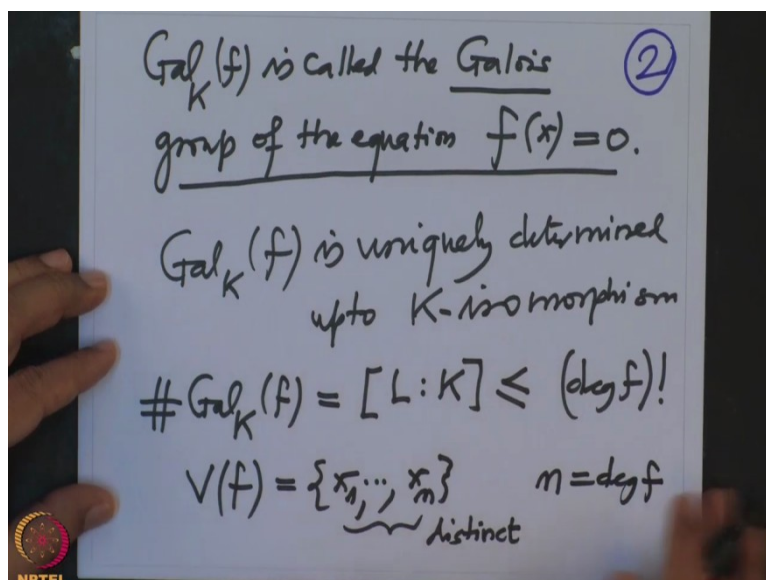 Gal_K(f) is called the Galois ②
group of the equation f(x) = 0.
Gal_K(f) is uniquely determined
upto K-isomorphism
# Gal_K(f) = [L:K] ≤ (deg f)!
V(f) = {x_1, ..., x_n} n = deg f
distinct
NPTEL